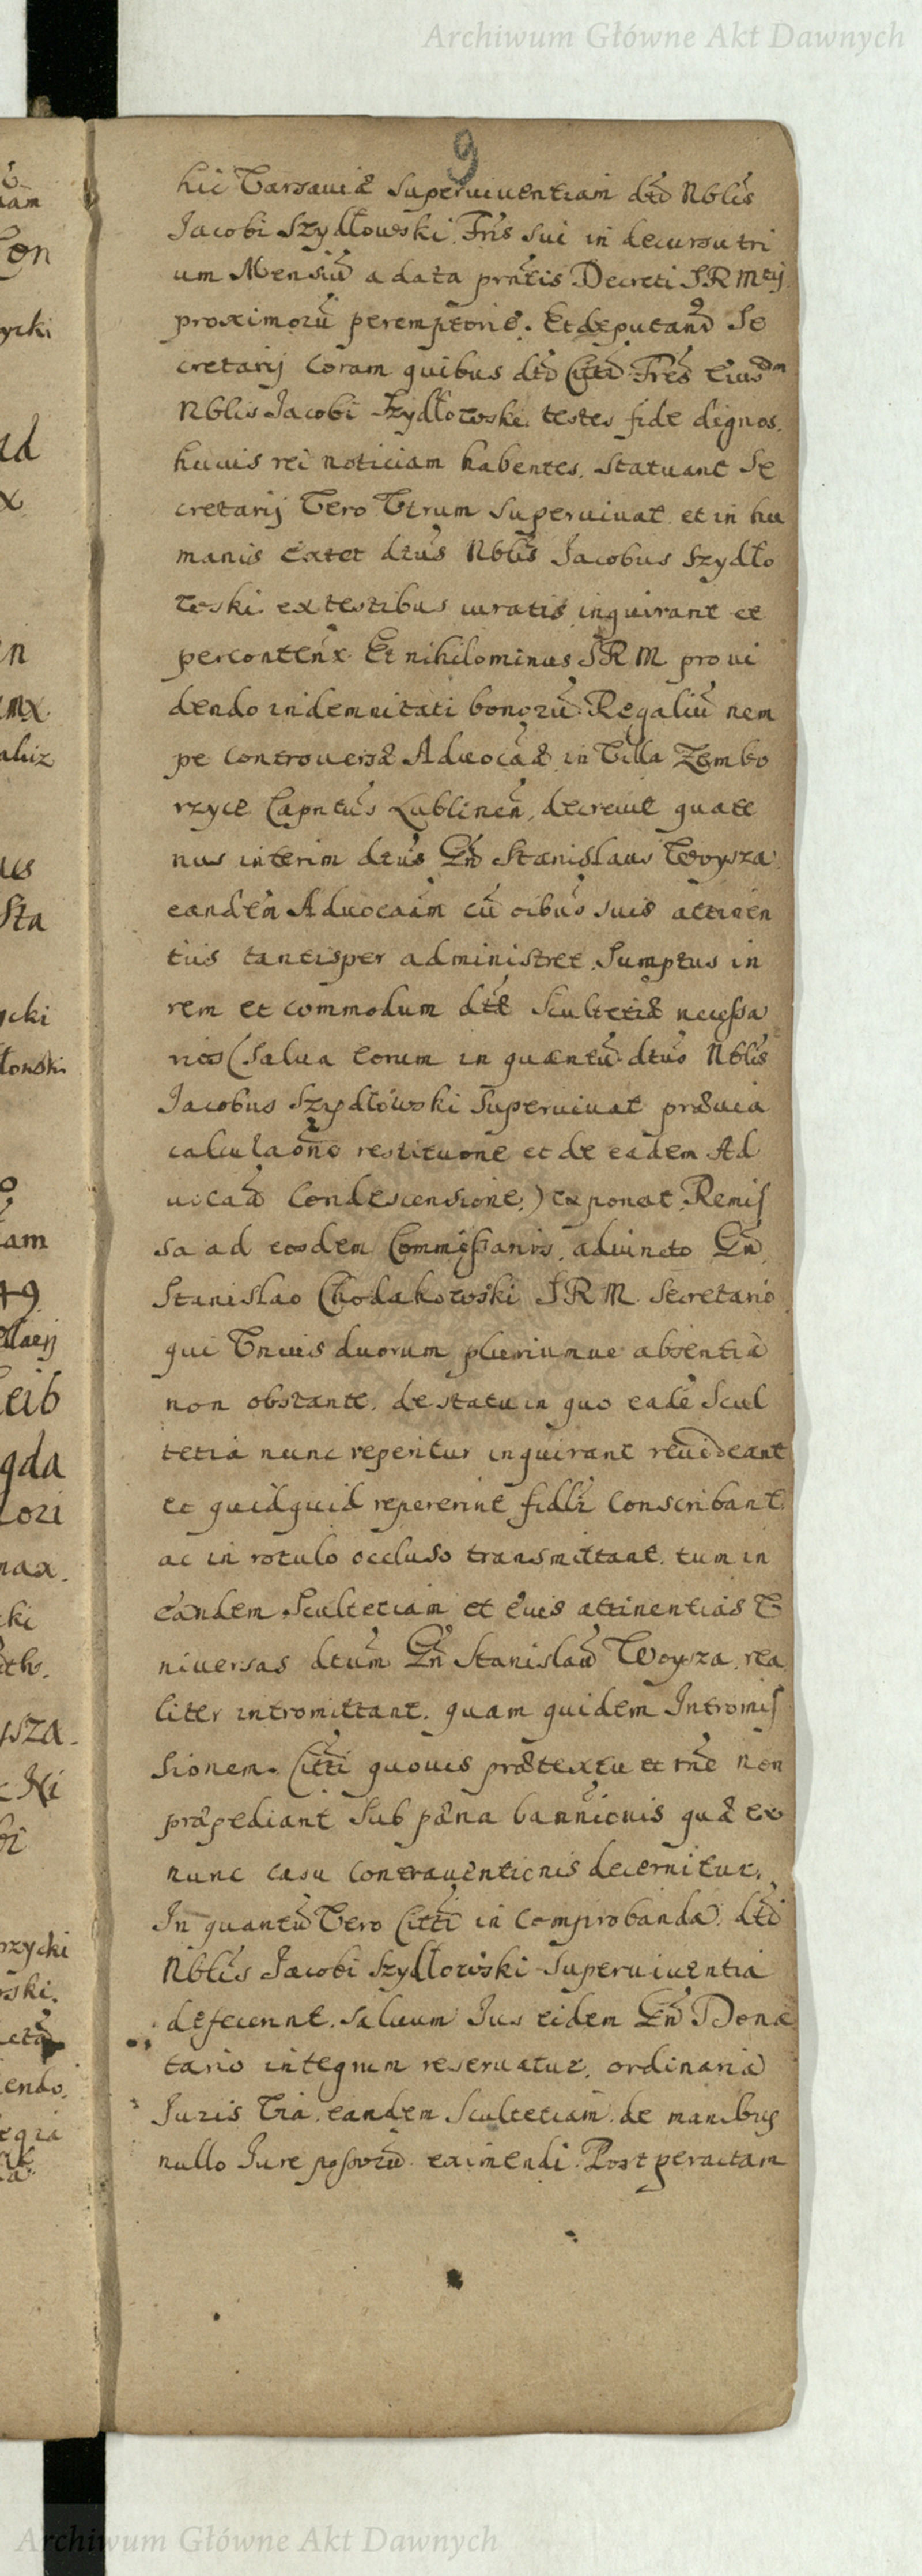 Archiwum Główne Akt Dawnych
9
hic Varsaviæ superviventiam dtti Nblis
Jacobi Szydłowski Fris sui in decursu tri
um Mensiũ a data prñtis Decreti SRMtis
proximorũ peremptorie. Et deputand Se
cretarij coram quibus dti Citti Fres eiusdm
Nblis Jacobi Szydłowski testes fide dignos,
huius rei noticiam habentes, statuant Se
cretarij Vero Utrum supervivat et in hu
manis extet dtus Nblis Jacobus Szydło
wski ex testibus iuratis inquirant et
percontenr. Et nihilominus SRM provi
dendo indemnitati bonorũ Regaliũ nem
pe controversæ Advocãæ in Villa Zembo
rzyce Capntus Lublinen, decrevit quate
nus interim dtus Gn Stanislaus Woysza
eandẽn Advocaãm cũ oibus suis attinen
tiis tantisper administret, Sumptus in
rem et commodum dtæ Scultetiæ necessa
rios (Salva eorum in quantũ dtus Nblis
Jacobus Szydłowski Supervivat prævia
calculaone restituone et de eadem Ad
vocaã Condescensione,) exponat, Remis
sa ad eosdem Commissarios, adiuncto Gn
Stanislao Chodakowski SRM Secretario
qui Unius duorum pluriumve absentia
non obstante, de statu in quo eadẽ Scul
tetia nunc reperitur inquirant revideant
et quidquid repererint fidlr conscribant
ac in rotulo occluso transmittant, tum in
eandem Scultetiam et eius attinentias U
niversas dtum Gn Stanislaũ Woysza, rea
liter intromittant. quam quidem Intromis
sionem. Citti quovis prætextu et rñe non
præpediant sub pæna bannicnis quæ ex
nunc casu contraventionis decernitur.
In quantũ Vero Citti in comprobanda dtti
Nblis Jacobi Szydłowski superviventia
defecerint, salvum Jus eidem Gn Dona
tario integrum reservatur, ordinaria
Juris Via, eandem Scultetiam de manibus
nullo Jure possorũ eximendi. Post peractam
Archiwum Główne Akt Dawnych